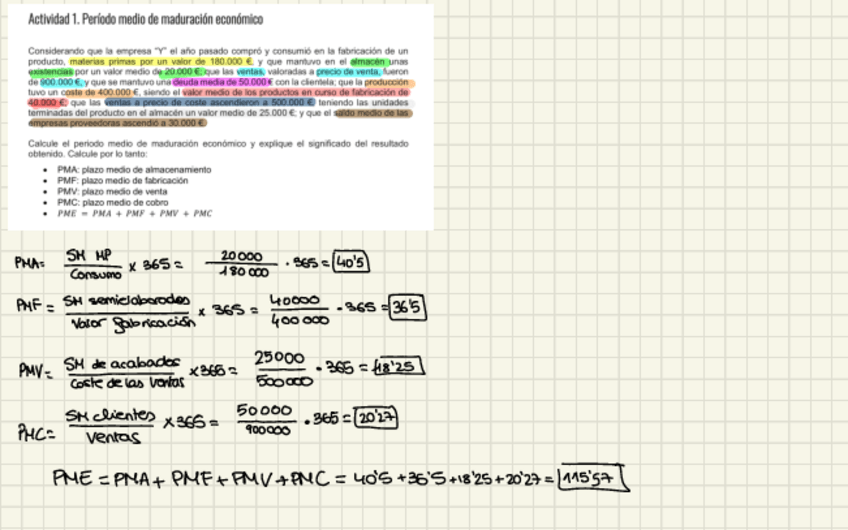 Actividad 1. Período medio de maduración económico
Considerando que la empresa "Y" el año pasado compró y consumió en la fabricación de un
producto, materias primas por un valor de 180.000 €, y que mantuvo en el almacén unas
existencias por un valor medio de 20.000 €; que las ventas, valoradas a precio de venta, fueron
de 900.000 €; y que se mantuvo una deuda media de 50.000 € con la clientela; que la producción
tuvo un coste de 400.000 €, siendo el valor medio de los productos en curso de fabricación de
40.000 €; que las ventas a precio de coste ascendieron a 500.000 €, teniendo las unidades
terminadas del producto en el almacén un valor medio de 25.000 €; y que el saldo medio de las
empresas proveedoras ascendió a 30.000 €.
Calcule el periodo medio de maduración económico y explique el significado del resultado
obtenido. Calcule por lo tanto:
• PMA: plazo medio de almacenamiento
• PMF: plazo medio de fabricación
• PMV: plazo medio de venta
• PMC: plazo medio de cobro
• PME = PMA + PMF + PMV + PMC
PMA = SM MP / Consumo x 365 = 20000 / 180000 · 365 = 40'5
PMF = SM semielaborados / Valor fabricación x 365 = 40000 / 400000 · 365 = 36'5
PMV = SM de acabados / Coste de las ventas x 365 = 25000 / 500000 · 365 = 18'25
PMC = SM clientes / Ventas x 365 = 50000 / 900000 · 365 = 20'27
PME = PMA + PMF + PMV + PMC = 40'5 + 36'5 + 18'25 + 20'27 = 115'57